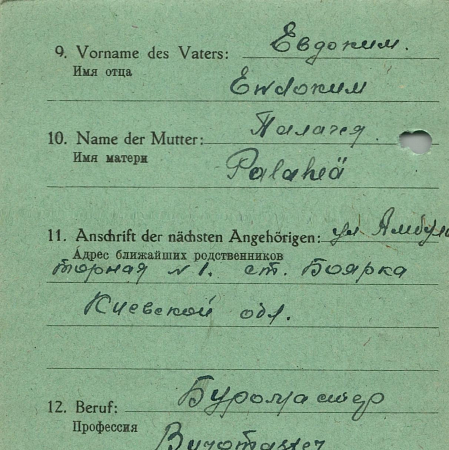 9. Vorname des Vaters: Евдоким.
Имя отца
Ewdokим
10. Name der Mutter: Палагея
Имя матери
Palaheä
11. Anschrift der nächsten Angehörigen: ул Амбула
Адрес ближайших родственников
торная N 1. ст. Боярка
Киевской обл.
12. Beruf: Буромастер
Профессия